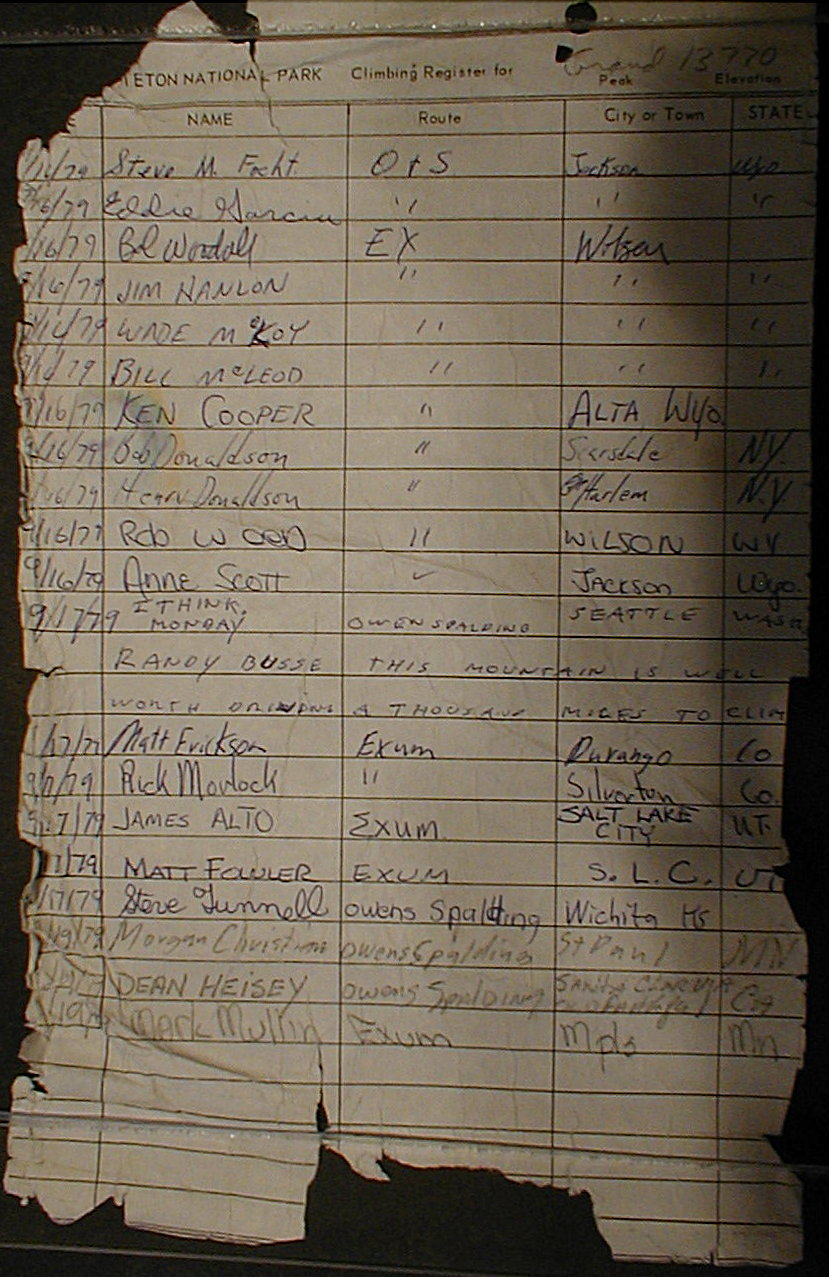 ETON NATIONAL PARK Climbing Register for Grand 13770
Peak Elevation
NAME Route City or Town STATE
/16/79 Steve M. Focht O + S Jackson Wyo
/16/79 Eddie Garcia " " "
/16/79 Bil Woodall EX Wilson
/16/79 JIM HANLON " " "
/16/79 WADE McKOY " " "
79 BILL McLEOD " " "
/16/79 KEN COOPER " ALTA Wyo
/16/79 Bob Donaldson " Scarsdale NY.
/16/79 Henry Donaldson " Harlem N.Y
9/16/79 Rob WOOD " WILSON WY
9/16/79 ANNE SCOTT " JACKSON Wyo.
9/17/79 I THINK, MONDAY OWEN SPALDING SEATTLE WASH
RANDY BUSSE THIS MOUNTAIN IS WELL
WORTH DRIVING A THOUSAND MILES TO CLIM
/17/79 Matt Erickson Exum Durango Co
/79 Rick Movlock " Silverton Co.
17/79 JAMES ALTO EXUM SALT LAKE CITY UT.
/79 MATT FOWLER EXUM S. L. C. UT
/17/79 Steve Gunnell owens Spalding Wichita Ks
/19/79 Morgan Christian owens Spalding St Paul MN
DEAN HEISEY owens Spalding Ca
/19/ Mark Mullin Exum Mpls Mn